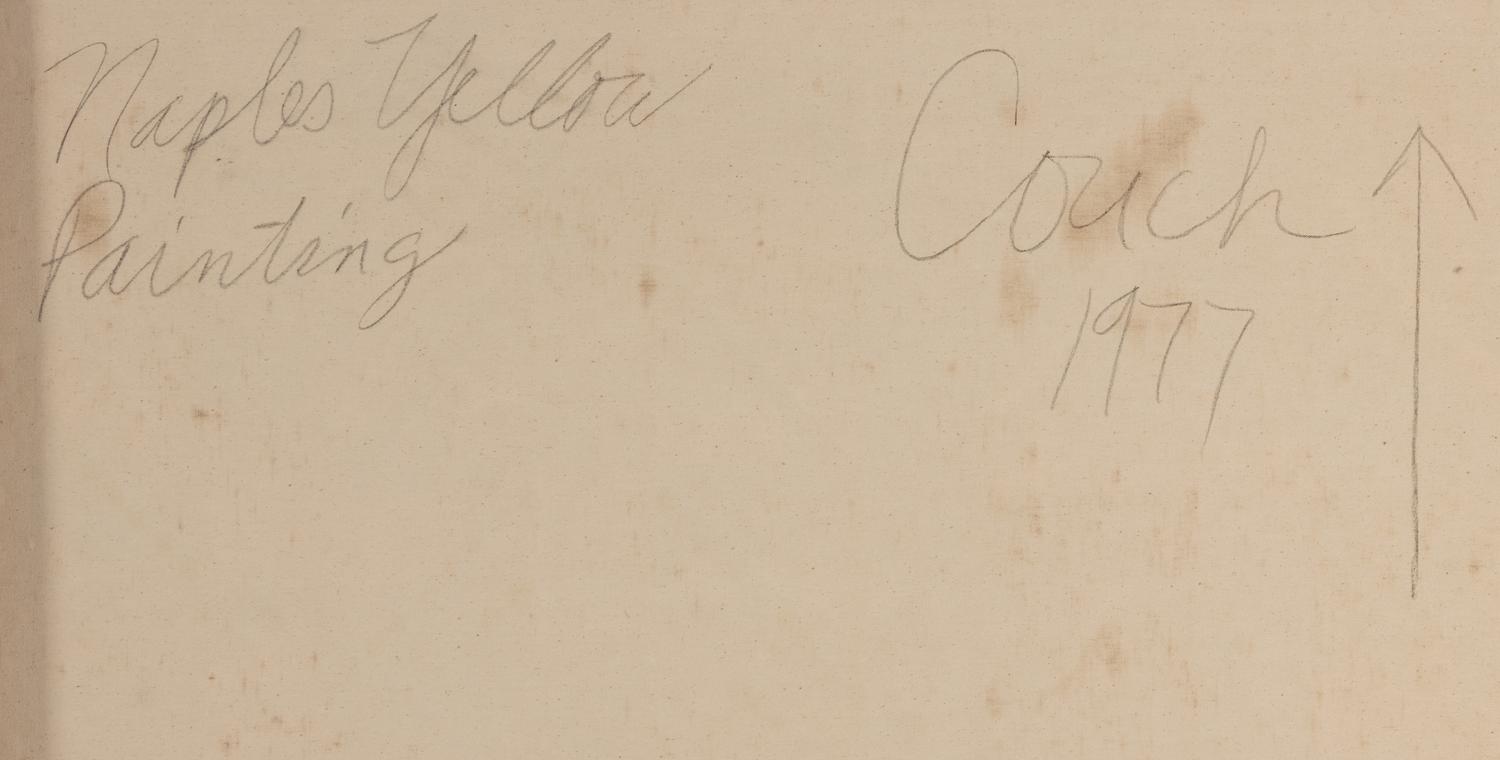 Naples Yellow
Painting
Couch
1977